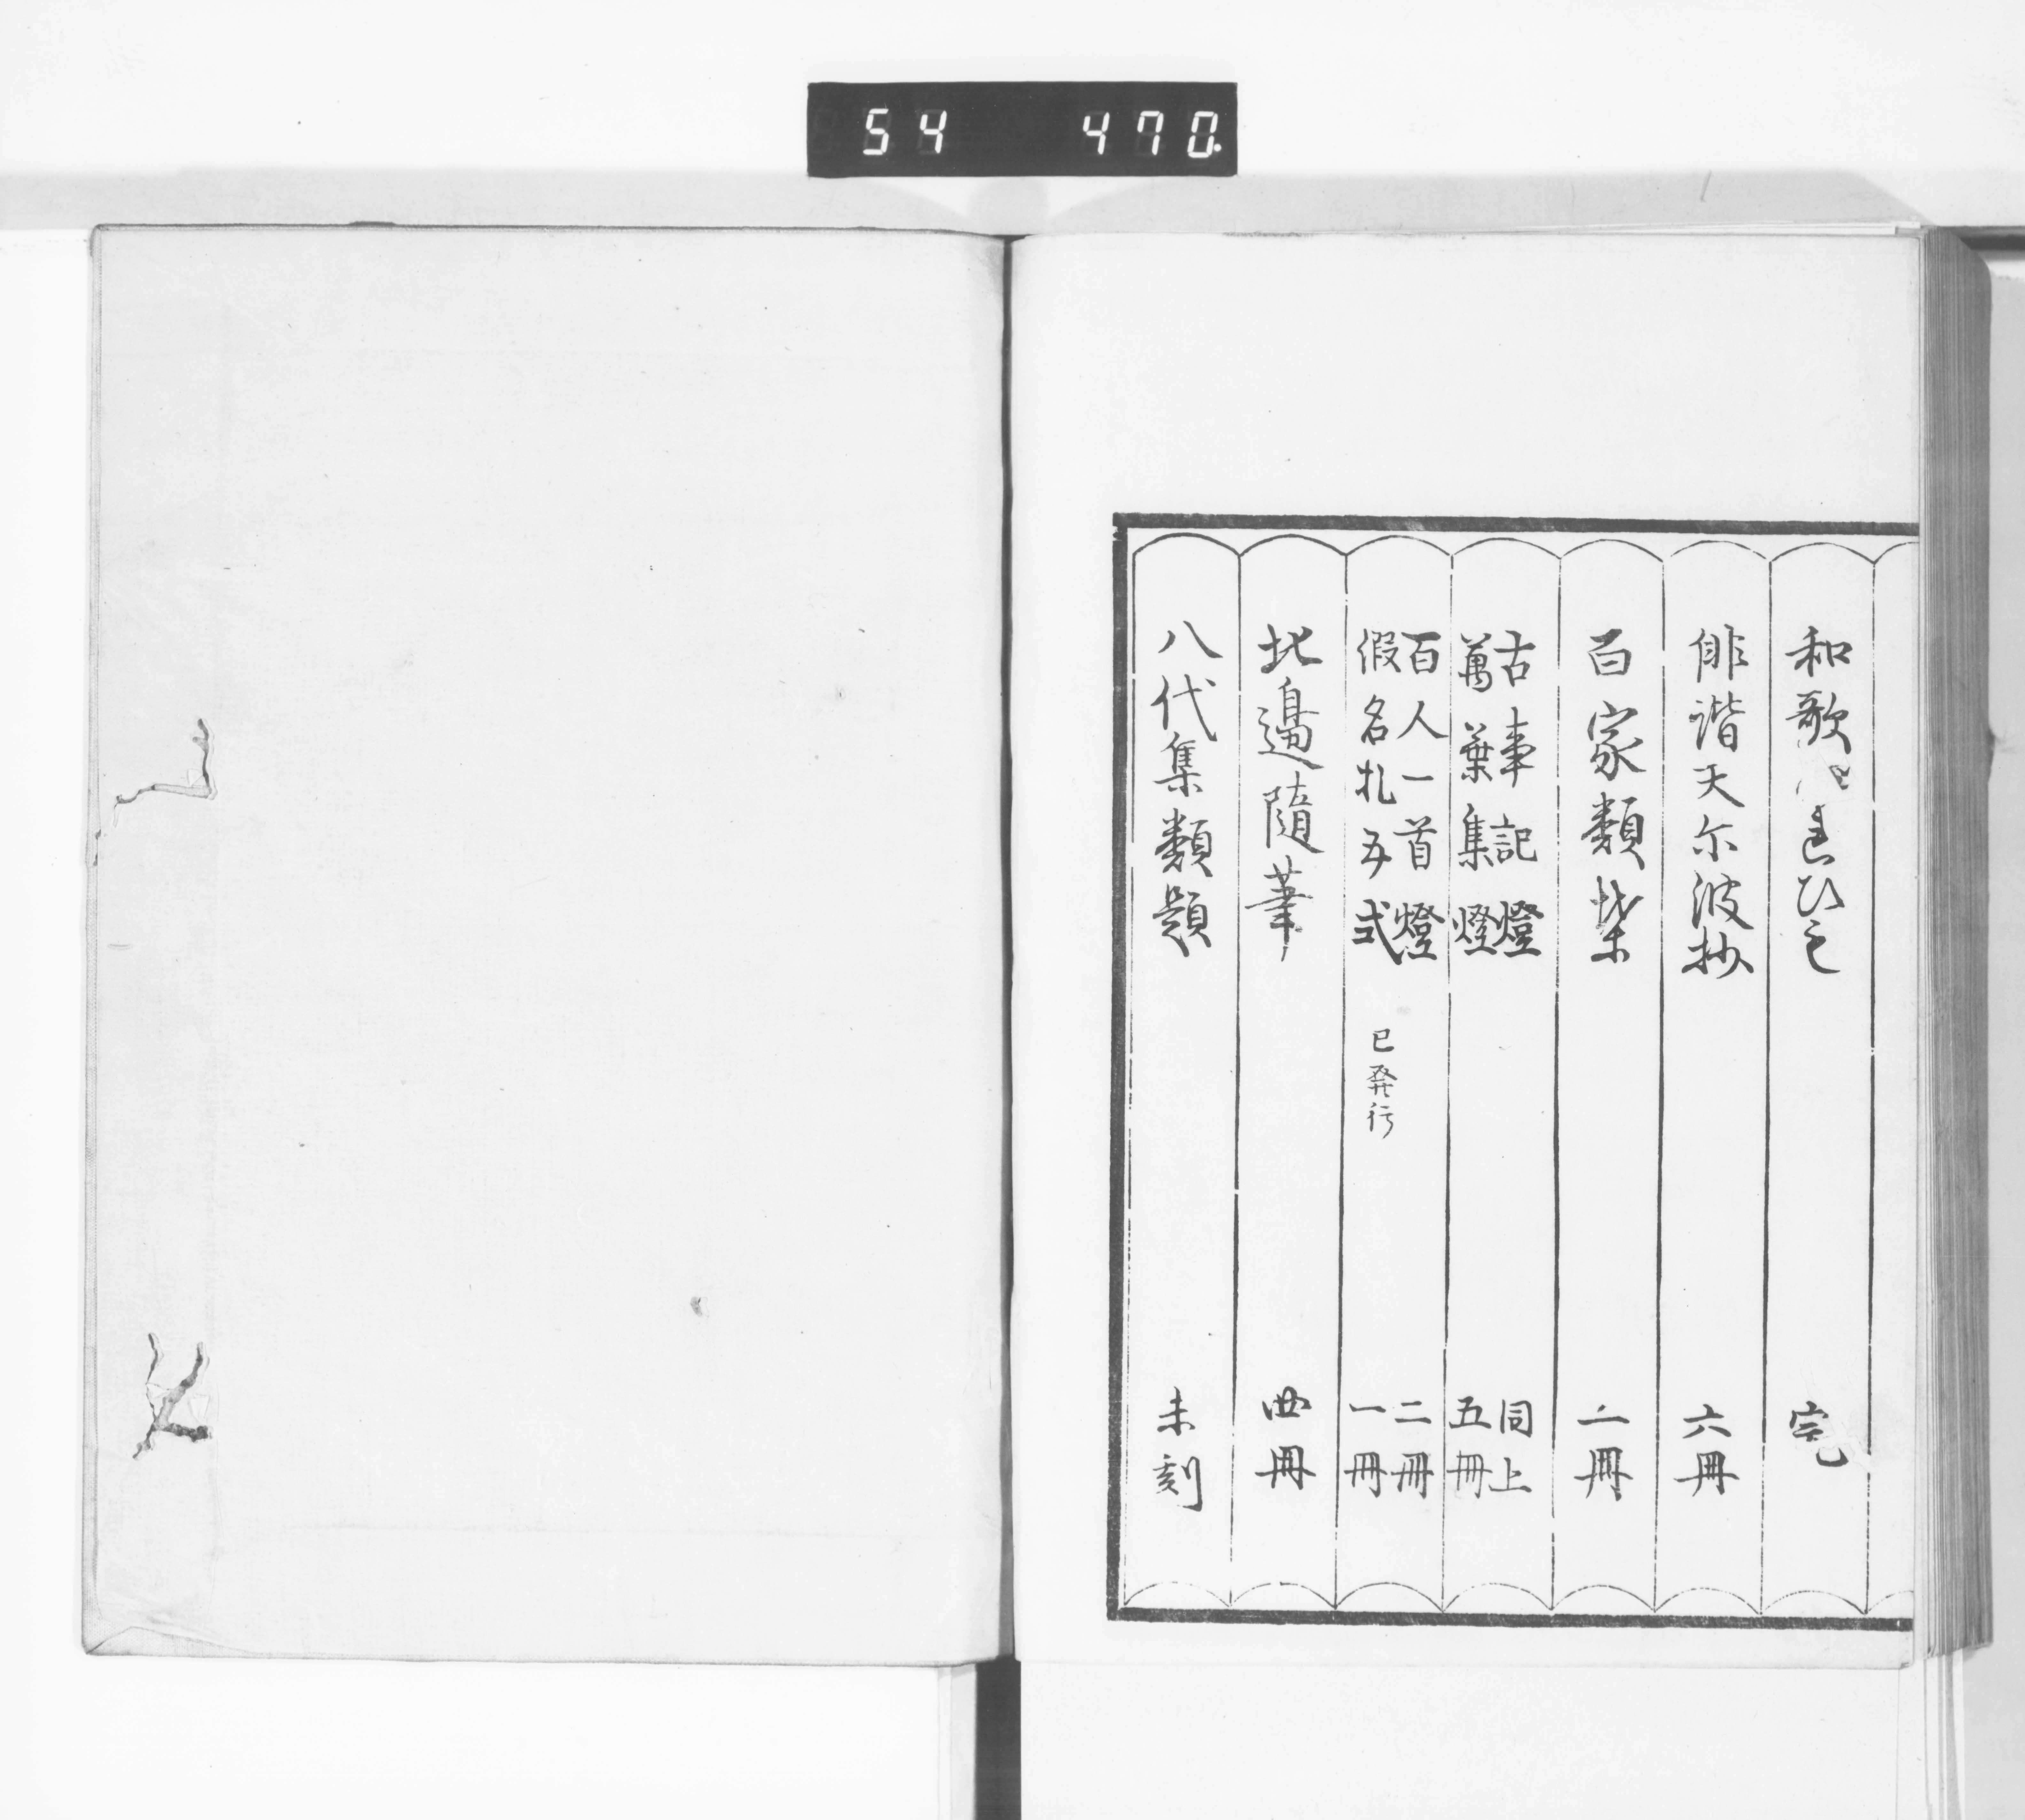 54 470
和歌 ひも 完
俳諧天尓波抄 六冊
百家類葉 二冊
古事記燈 同上
萬葉集燈 五冊
百人一首燈 二冊
假名札五式 已発行 一冊
北邊隨筆 四冊
八代集類題 未刻